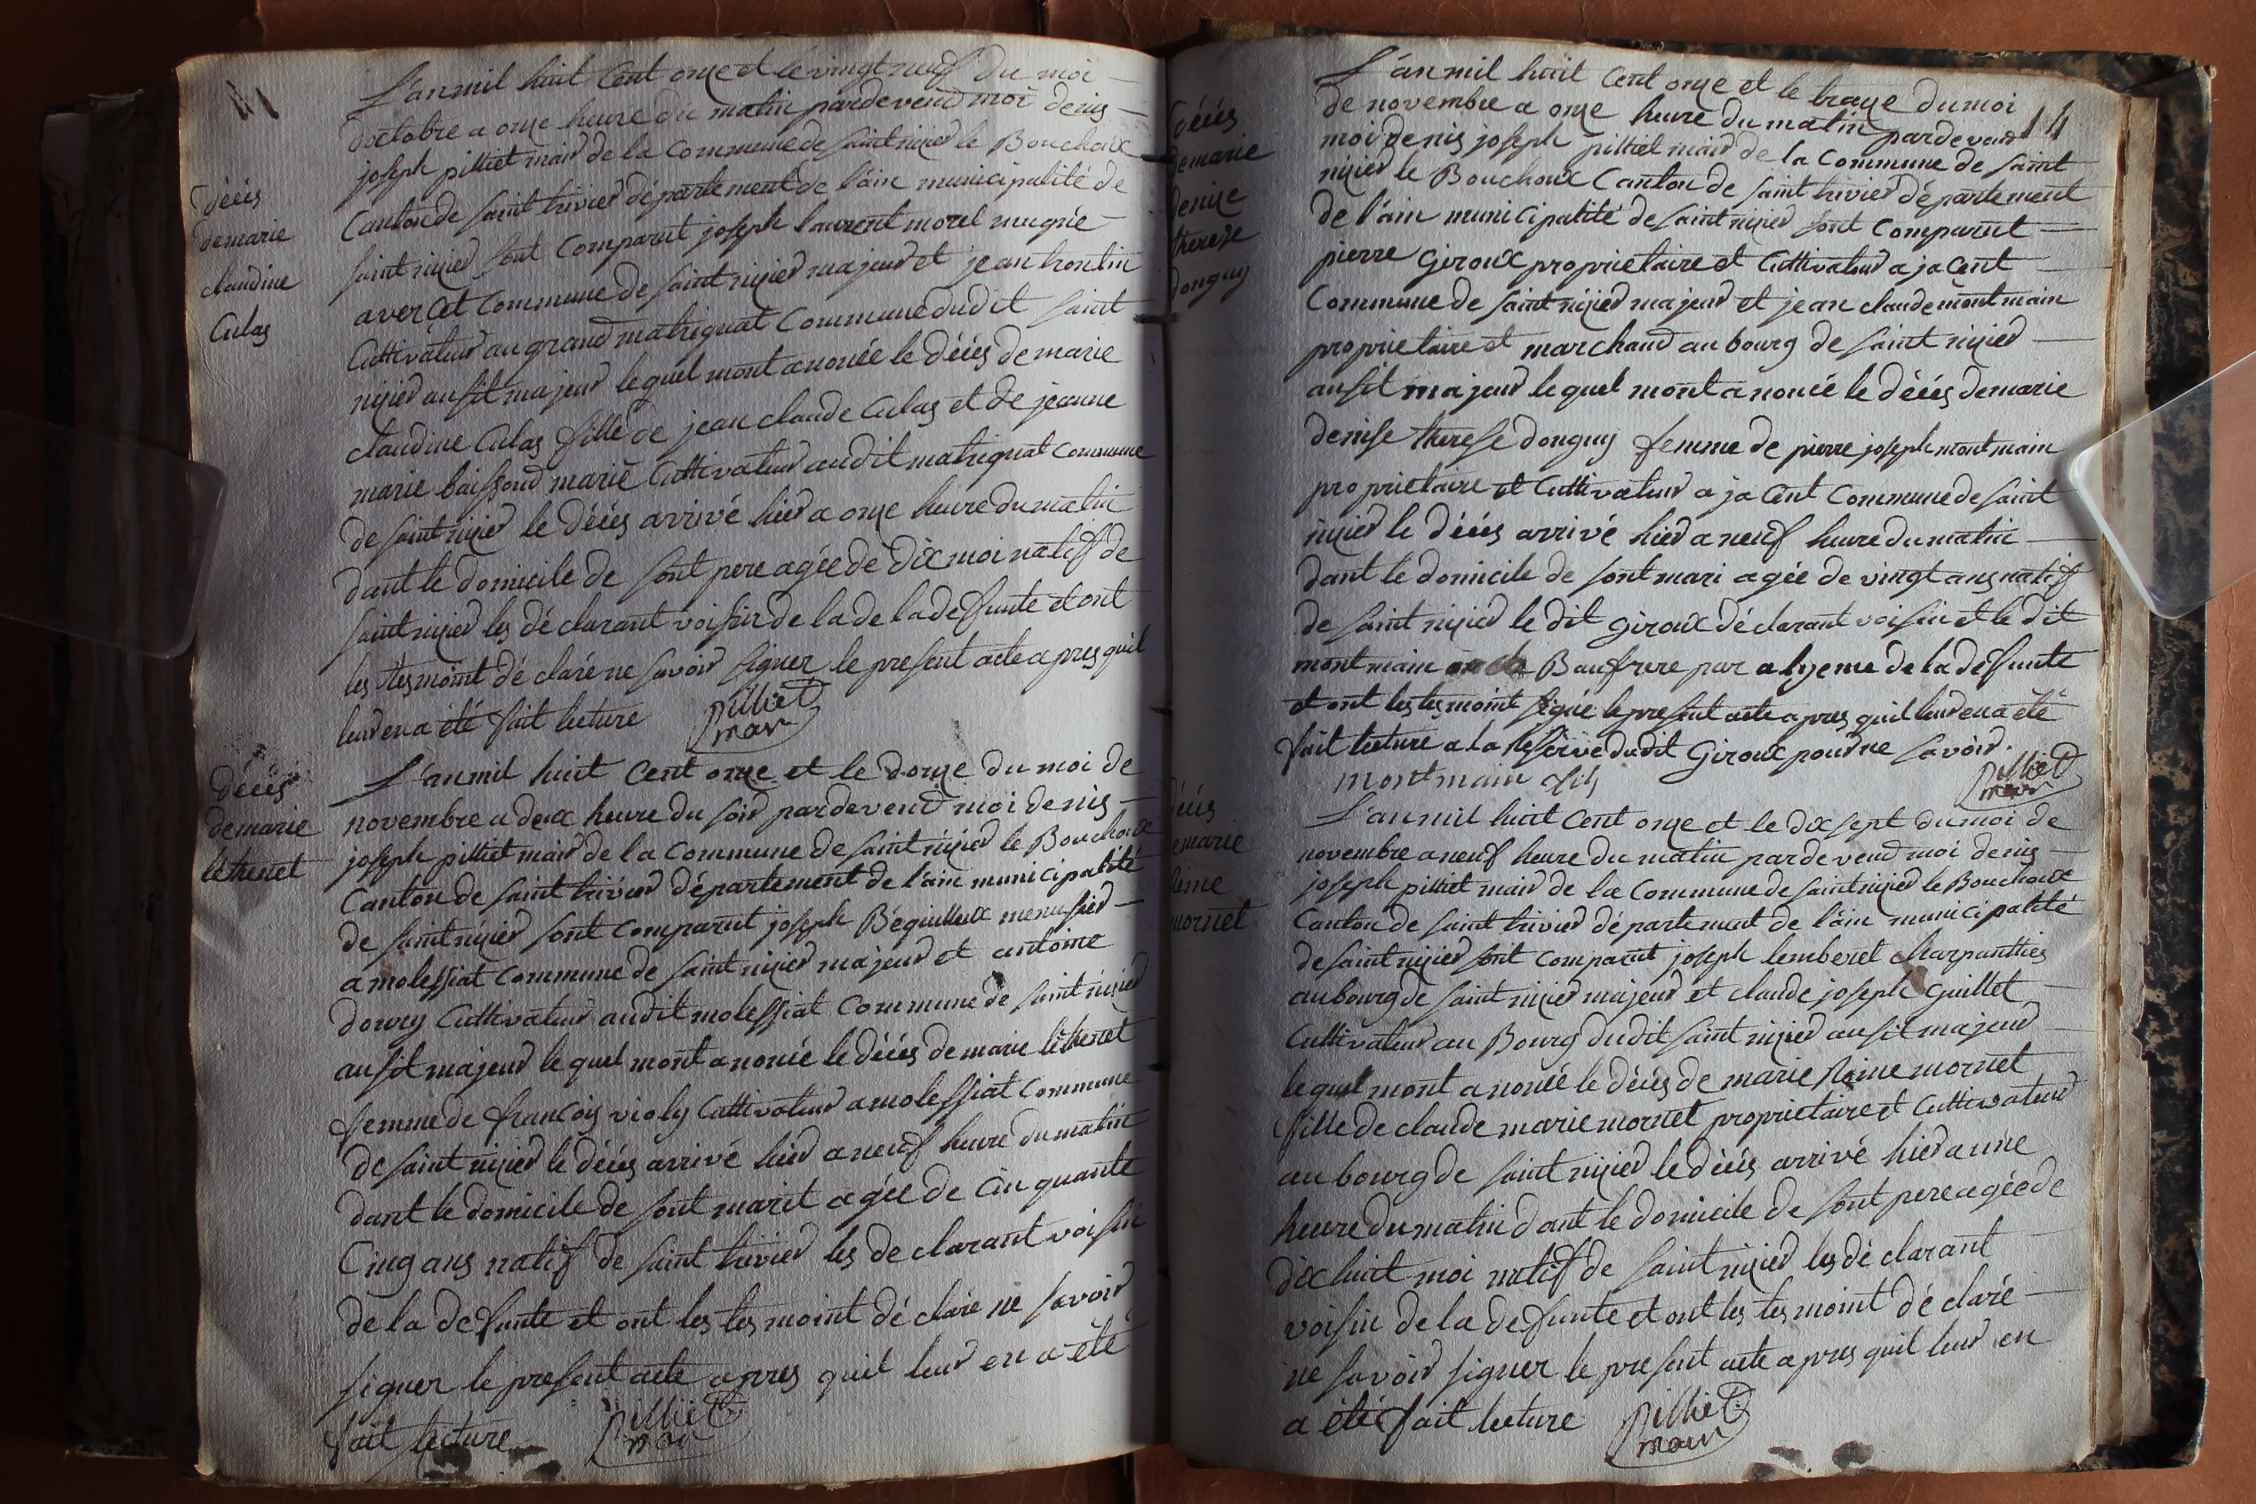 L'an mil huit Cent onze et le vingt neuf du moi
doctobre a onze heure du matin pardevend moi denis
joseph pilliet mair de la Commune de saint nizier le Bouchoux
Canton de saint trivier département de l'ain municipalité de
saint nizier sont Comparut joseph laurent morel
avercet Commune de saint nizier majeur et jean hontin
Cultivateur au grand matrignat Commune dudit saint
nizier ausit majeur lequel mont anoncée le décés de marie
claudine Culas fille de jean claude Culas et de jeanne
marie boissond marié Cultivateur audit matrignat commune
de saint nizier le décés arrivé hier a onze heure du matin
dant le domicile de sont pere agée de dix moi natif de
saint nizier les déclarant voisin de la de la defunte et ont
les tesmoint déclaré ne savoir signer le present acte apres quil
leur en a été fait lecture
pilliet
mair
décés
de marie
claudine
Culas
L'an mil huit Cent onze et le douze du moi de
novembre a deux heure du soir pardevend moi denis
joseph pilliet mair de la Commune de saint nizier le Bouchoux
Canton de saint trivier département de l'ain municipalité
de saint nizier sont Comparut joseph Béguilleux menusier
a molessiat Commune de saint nizier majeur et antoine
doury Cultivateur audit molessiat Commune de saint nizier
ausit majeur lequel mont anoncée le décés de marie léthenet
femme de françois violy Cultivateur a molessiat Commune
de saint nizier le décés arrivé hier a neuf heure du matin
dant le domicile de sont marit agée de Cinquante
Cinq ans natif de saint trivier les declarant voisin
de la defunte et ont les tesmoint déclaré ne savoir
signer le present acte apres quil leur en a été
fait lecture
pilliet
mair
décés
de marie
léthenet
14
L'an mil huit Cent onze et le traize du moi
de novembre a onze heure du matin pardevend
moi denis joseph pilliet mair de la Commune de saint
nizier le Bouchoux Canton de saint trivier département
de l'ain municipalité de saint nizier sont Comparut
pierre Giroux proprietaire et Cultivateur a jacent
Commune de saint nizier majeur et jean claude montmain
proprietaire et marchand au bourg de saint nizier
ausit majeur lequel mont anoncée le décés de marie
denise therese donguy femme de pierre joseph montmain
proprietaire et Cultivateur a jacent Commune de saint
nizier le décés arrivé hier a neuf heure du matin
dant le domicile de sont mari agée de vingt ans natif
de saint nizier le dit Giroux déclarant voisin et le dit
montmain Baufrere par alyence de la defunte
et ont les tesmoint signé le present acte apres quil leur en a été
fait lecture a la reserve dudit Giroux pour ne savoir.
montmain fils
pilliet
mair
décés
de marie
denize
therese
donguy
L'an mil huit Cent onze et le dix sept du moi de
novembre a neuf heure du matin pardevend moi denis
joseph pilliet mair de la Commune de saint nizier le Bouchoux
Canton de saint trivier département de l'ain municipalité
de saint nizier sont Comparut joseph lemberet Charpanthies
au bourg de saint nizier majeur et claude joseph Guillet
Cultivateur au Bourg dudit saint nizier ausit majeur
lequel mont anoncée le décés de marie Reine mornet
fille de claude marie mornet proprietaire et Cultivateur
au bourg de saint nizier le décés arrivé hier a une
heure du matin dant le domicile de sont pere agée de
dix huit moi natif de saint nizier les déclarant
voisin de la defunte et ont les tesmoint déclaré
ne savoir signer le present acte apres quil leur en
a été fait lecture
pilliet
mair
décés
de marie
mornet